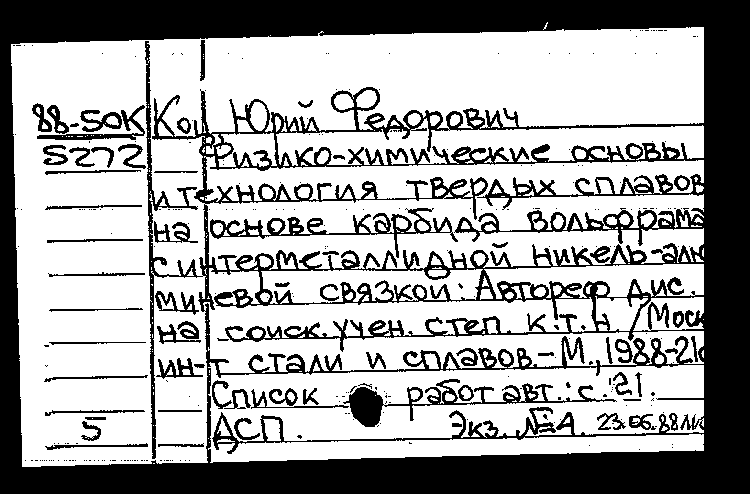 88-50К Коц Юрий Федорович
5272 Физико-химические основы
и технология твердых сплавов
на основе карбида вольфрама
с интерметаллидной никель-алю
миневой связкой: Автореф. дис.
на соиск. учен. степ. к.т.н. / Моск
ин-т стали и сплавов. - М., 1988-21с
Список работ авт.: с. 21.
5 ДСП. Экз. №4. 23.06.88